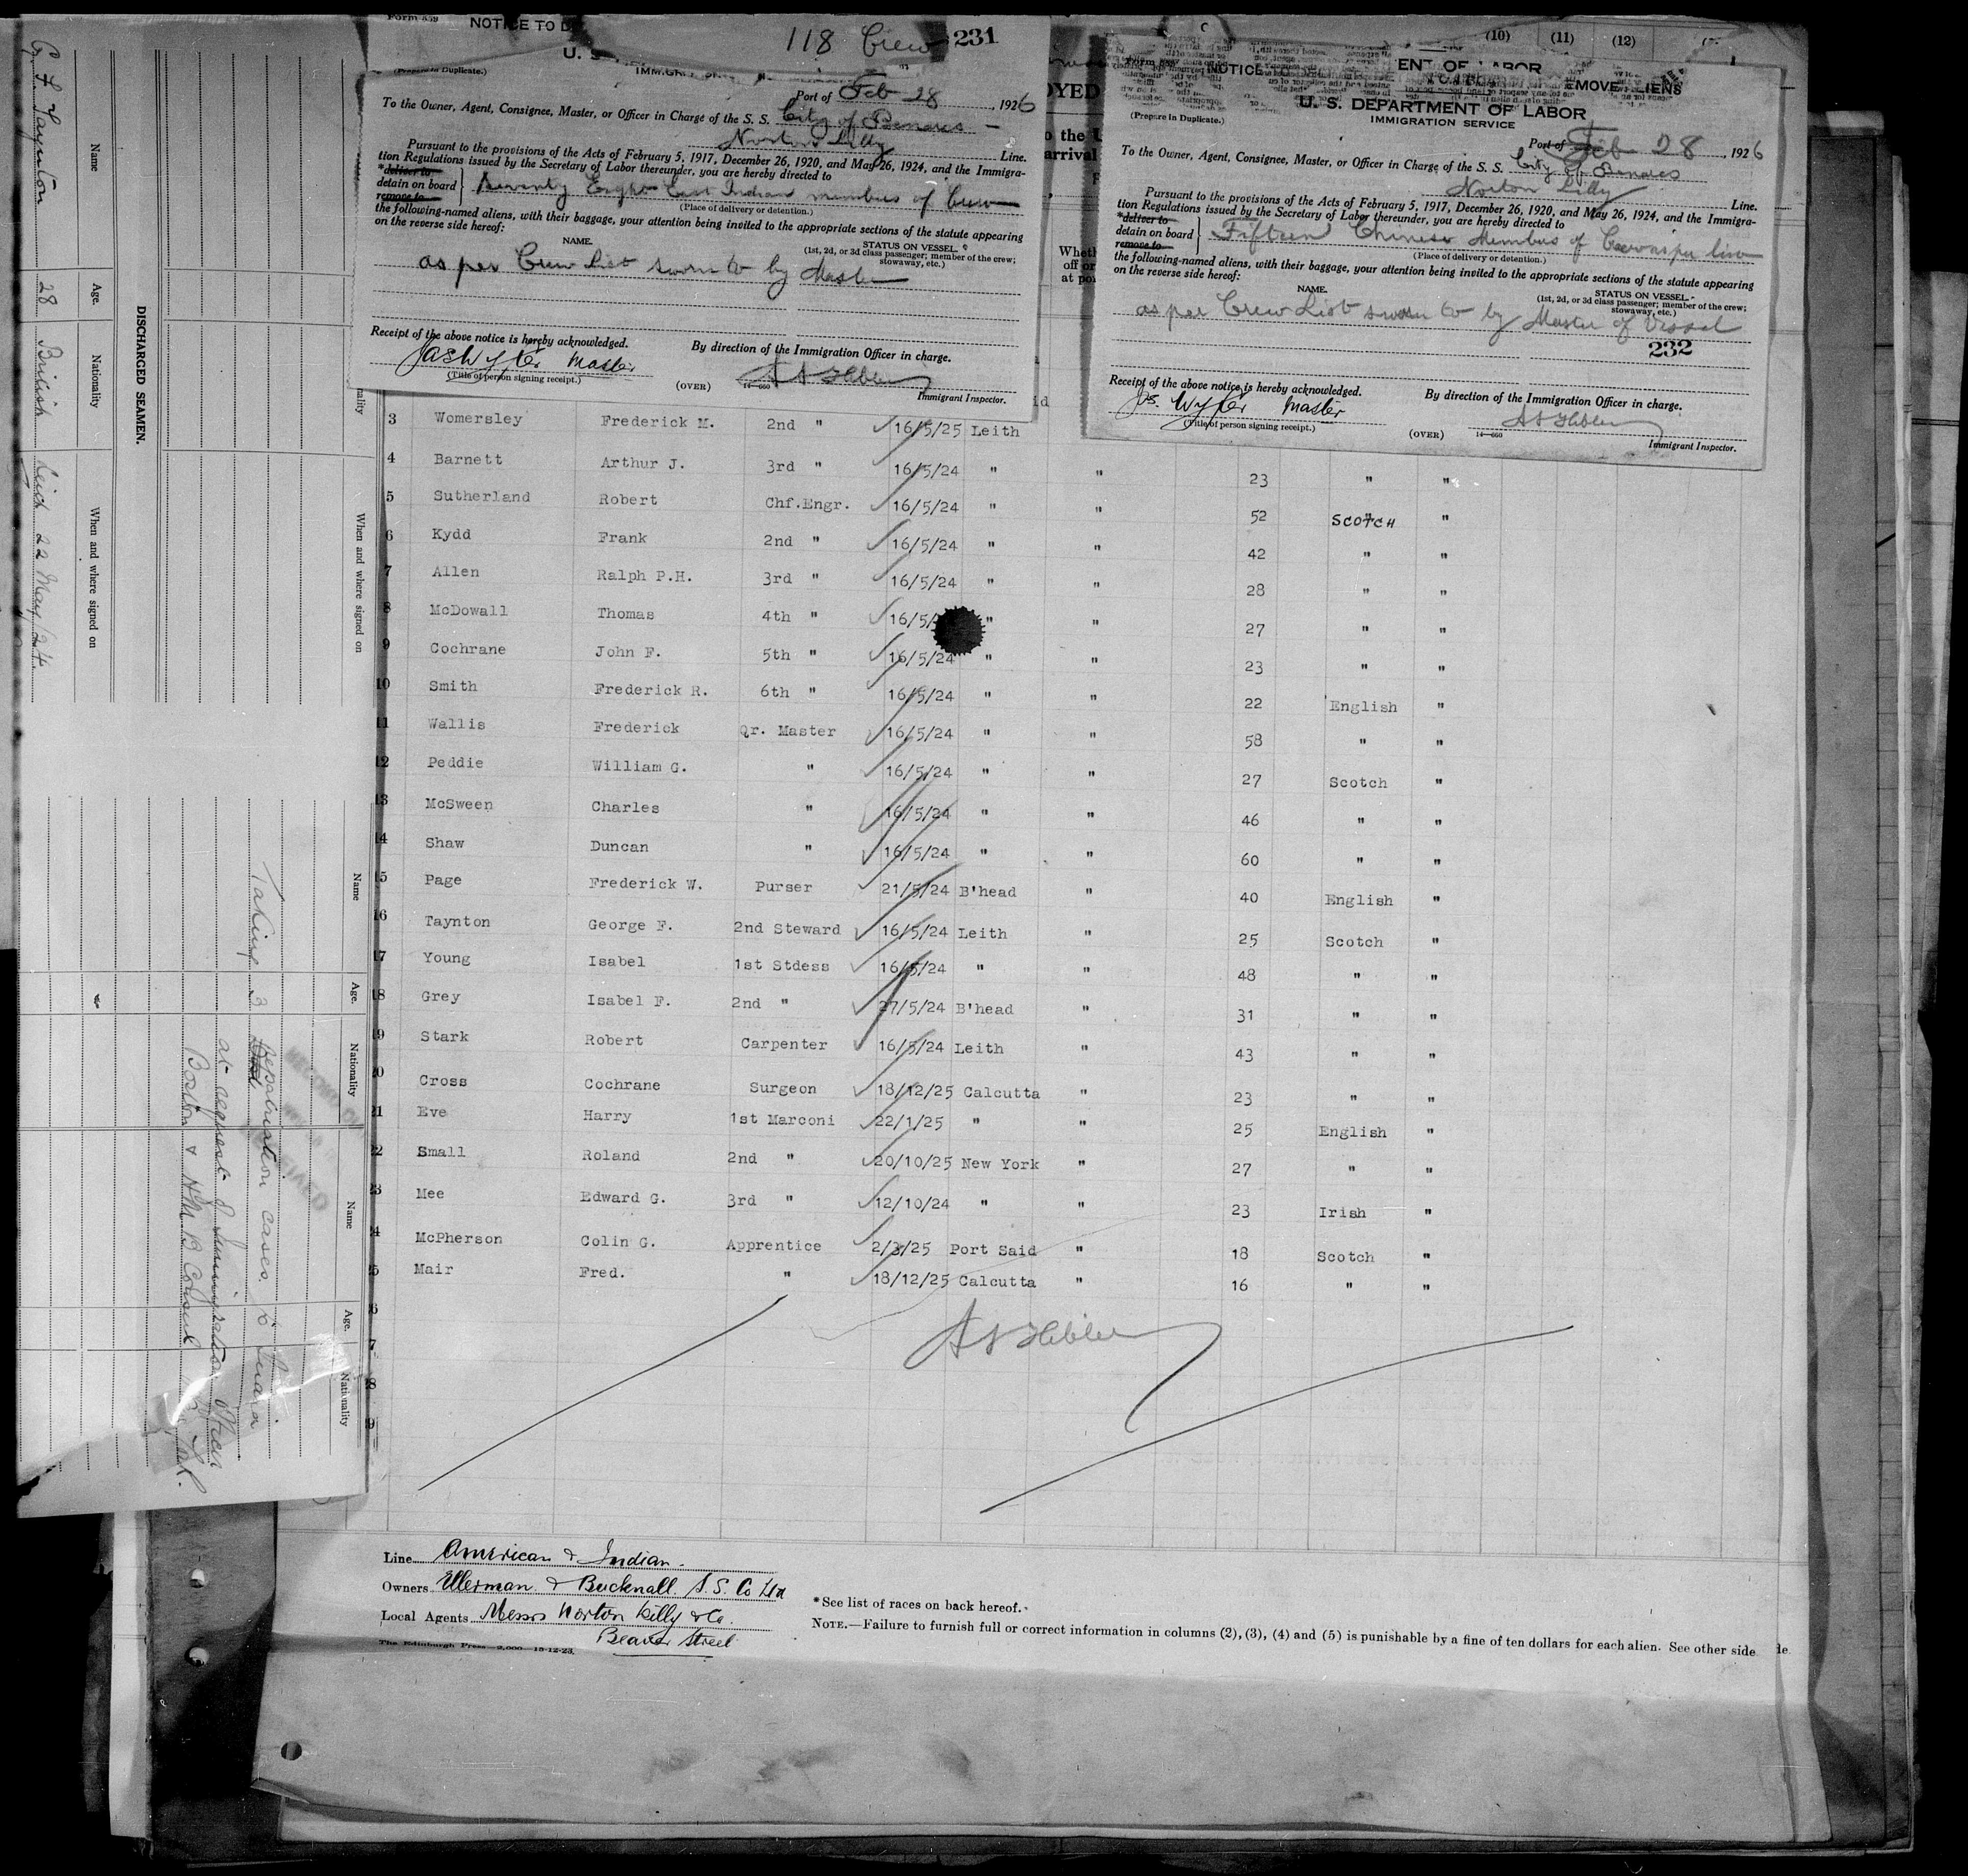 G. F. Taynton 28 British Leith 22 May 24.
Name Age. Nationality When and where signed on
DISCHARGED SEAMEN.
When and where signed on
Name Age. Nationality
Name Age. Nationality
Taking 3 repatriation cases to India
at request of Immigration Officer
Boston & H.M. B Consul N.Y.
Form 889
NOTICE TO
118 Crew 231
(Prepare in Duplicate.)
Port of Feb 28, 1926
To the Owner, Agent, Consignee, Master, or Officer in Charge of the S. S. City of Benares
Norton Lilly Line.
Pursuant to the provisions of the Acts of February 5, 1917, December 26, 1920, and May 26, 1924, and the Immigra-
tion Regulations issued by the Secretary of Labor thereunder, you are hereby directed to
*deliver to
detain on board
remove to
Seventy Eight East Indian members of Crew
(Place of delivery or detention.)
the following-named aliens, with their baggage, your attention being invited to the appropriate sections of the statute appearing
on the reverse side hereof:
NAME. STATUS ON VESSEL.
(1st, 2d, or 3d class passenger; member of the crew;
stowaway, etc.)
as per Crew List sworn to by Master
Receipt of the above notice is hereby acknowledged. By direction of the Immigration Officer in charge.
Jas Wyper Master
(Title of person signing receipt.) (OVER) 14—660 Immigrant Inspector.
(10) (11) (12)
ENT OF LABOR
NOTICE
REMOVE ALIENS
U. S. DEPARTMENT OF LABOR
IMMIGRATION SERVICE
(Prepare in Duplicate.)
Port of Feb 28, 1926
To the Owner, Agent, Consignee, Master, or Officer in Charge of the S. S. City of Benares
Norton Lilly Line.
Pursuant to the provisions of the Acts of February 5, 1917, December 26, 1920, and May 26, 1924, and the Immigra-
tion Regulations issued by the Secretary of Labor thereunder, you are hereby directed to
*deliver to
detain on board
remove to
Fifteen Chinese Members of Crew as per list
(Place of delivery or detention.)
the following-named aliens, with their baggage, your attention being invited to the appropriate sections of the statute appearing
on the reverse side hereof:
NAME. STATUS ON VESSEL.
(1st, 2d, or 3d class passenger; member of the crew;
stowaway, etc.)
as per Crew List sworn to by Master of Vessel
232
Receipt of the above notice is hereby acknowledged. By direction of the Immigration Officer in charge.
Js. Wyper Master
(Title of person signing receipt.) (OVER) 14—660 Immigrant Inspector.
3 Womersley Frederick M. 2nd " 16/5/25 Leith
4 Barnett Arthur J. 3rd " 16/5/24 " " 23 " "
5 Sutherland Robert Chf.Engr. 16/5/24 " " 52 SCOTCH "
6 Kydd Frank 2nd " 16/5/24 " " 42 " "
7 Allen Ralph P.H. 3rd " 16/5/24 " " 28 " "
8 McDowall Thomas 4th " 16/5/ " " 27 " "
9 Cochrane John F. 5th " 16/5/24 " " 23 " "
10 Smith Frederick R. 6th " 16/5/24 " " 22 English "
11 Wallis Frederick Qr. Master 16/5/24 " " 58 " "
12 Peddie William G. " 16/5/24 " " 27 Scotch "
13 McSween Charles " 16/5/24 " " 46 " "
14 Shaw Duncan " 16/5/24 " " 60 " "
15 Page Frederick W. Purser 21/5/24 B'head " 40 English "
16 Taynton George F. 2nd Steward 16/5/24 Leith " 25 Scotch "
17 Young Isabel 1st Stdess 16/5/24 " " 48 " "
18 Grey Isabel F. 2nd " 27/5/24 B'head " 31 " "
19 Stark Robert Carpenter 16/5/24 Leith " 43 " "
20 Cross Cochrane Surgeon 18/12/25 Calcutta " 23 " "
21 Eve Harry 1st Marconi 22/1/25 " " 25 English "
22 Small Roland 2nd " 20/10/25 New York " 27 " "
23 Mee Edward G. 3rd " 12/10/24 " " 23 Irish "
24 McPherson Colin G. Apprentice 2/3/25 Port Said " 18 Scotch "
25 Mair Fred. " 18/12/25 Calcutta " 16 " "
Line American & Indian.
Owners Ellerman & Bucknall S.S. Co Ltd
Local Agents Messrs Norton Lilly & Co.
Beaver Street
The Edinburgh Press—2,000—15-12-23.
*See list of races on back hereof.
NOTE.—Failure to furnish full or correct information in columns (2), (3), (4) and (5) is punishable by a fine of ten dollars for each alien. See other side